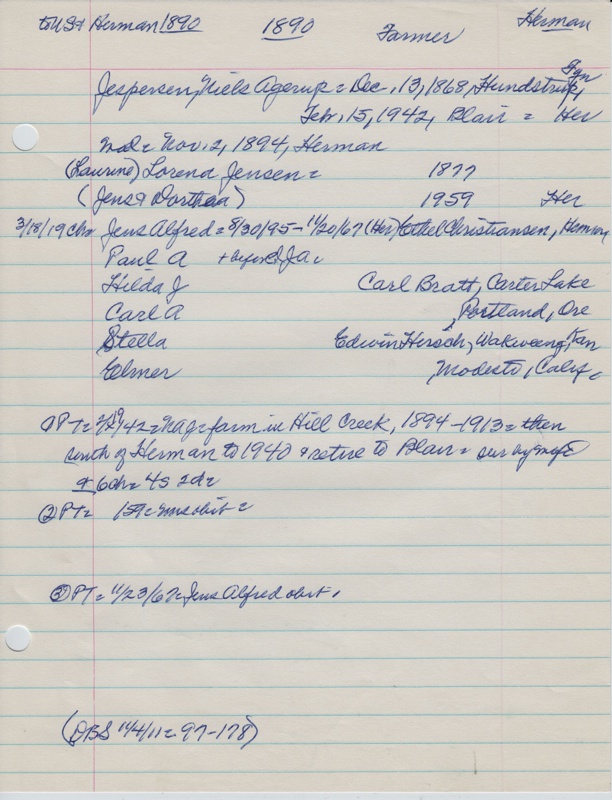 to US & Herman 1890 1890 Farmer Herman
Jespersen, Niels Agerup = Dec. 13, 1868, Hundstrup, Fyn
Feb. 15, 1942, Blair = Her
md = Nov. 2, 1894, Herman
(Laurine) Lorena Jensen = 1877
(Jens & Dorthea) 1959 Her
3/18/19 Jens Alfred = 8/30/95 - 11/20/67 (Her) Ethel Christiansen,
Paul A
Hilda J Carl Bratt, Carter Lake
Carl A Portland, Ore
Stella Edwin Hersch, Kan
Elmer Modesto, Calif.
① PT = farm in Hill Creek, 1894-1913 = then
south of Herman to 1940 & retire to Blair = sur by wife
& 6 ch = 4s 2d =
② PT = '59 = mrs obit =
③ PT = 11/23/67 = Jens Alfred obit.
(DBS 11/4/11 = 97-178)